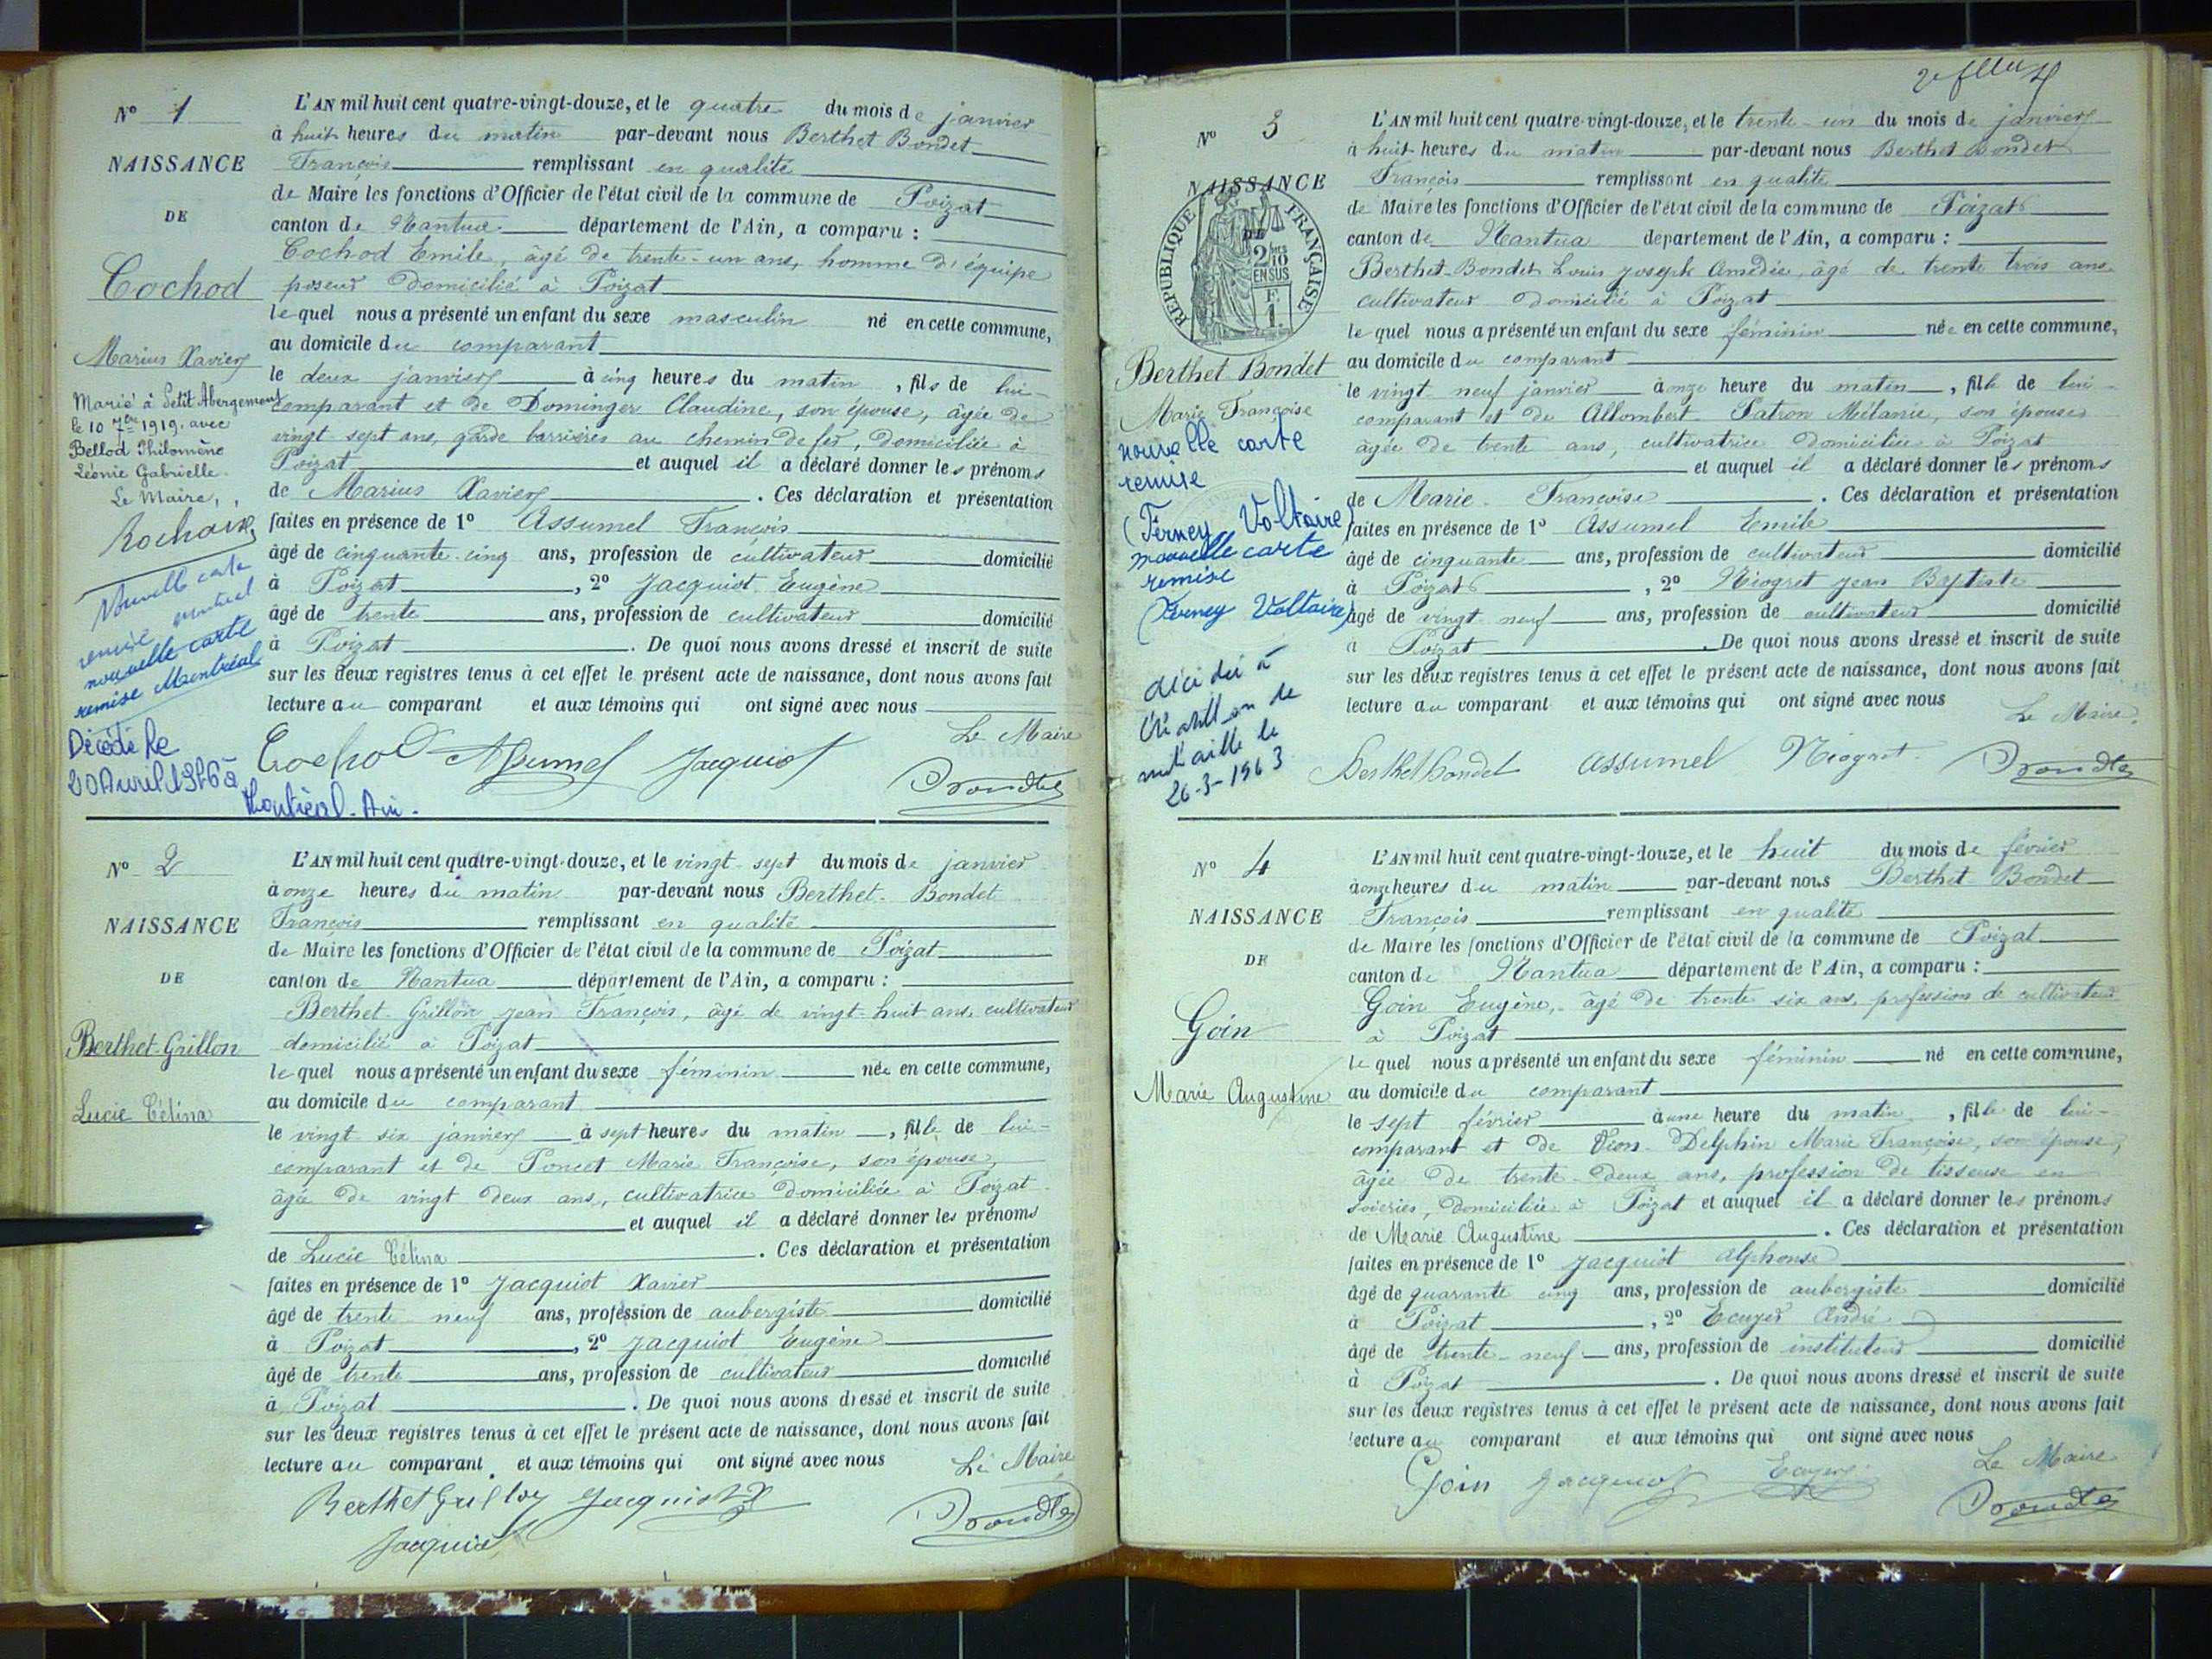 N° 1
NAISSANCE
DE
Cochod
Marius Xavier
Marié à Petit Abergement
le 10 7bre 1919 avec
Bellod Philomène
Léonie Gabrielle
Le Maire,
Nouvelle carte
remise
nouvelle carte
remise Montréal
Décédé le
20 Avril 1976 à
Montréal. Ain.
L'AN mil huit cent quatre-vingt-douze, et le quatre du mois de janvier
à huit heures du matin par-devant nous Berthet Bondet
François remplissant en qualité
de Maire les fonctions d'Officier de l'état civil de la commune de Poizat
canton de Nantua département de l'Ain, a comparu :
Cochod Emile, âgé de trente-un ans, homme d'équipe
poseur domicilié à Poizat
lequel nous a présenté un enfant du sexe masculin né en cette commune,
au domicile du comparant
le deux janvier à cinq heures du matin, fils de lui-
comparant et de Dominger Claudine, son épouse, âgée de
vingt-sept ans, garde barrières au chemin de fer, domiciliée à
Poizat et auquel il a déclaré donner les prénoms
de Marius Xavier. Ces déclaration et présentation
faites en présence de 1° Assumel François
âgé de cinquante-cinq ans, profession de cultivateur domicilié
à Poizat, 2° Jacquiot Eugène
âgé de trente ans, profession de cultivateur domicilié
à Poizat. De quoi nous avons dressé et inscrit de suite
sur les deux registres tenus à cet effet le présent acte de naissance, dont nous avons fait
lecture au comparant et aux témoins qui ont signé avec nous
Le Maire
Cochod Assumel Jacquiot
N° 2
NAISSANCE
DE
Berthet-Grillon
Lucie Célina
L'AN mil huit cent quatre-vingt-douze, et le vingt-sept du mois de janvier
à onze heures du matin par-devant nous Berthet-Bondet
François remplissant en qualité
de Maire les fonctions d'Officier de l'état civil de la commune de Poizat
canton de Nantua département de l'Ain, a comparu :
Berthet-Grillon Jean François, âgé de vingt-huit ans, cultivateur
domicilié à Poizat
lequel nous a présenté un enfant du sexe féminin née en cette commune,
au domicile du comparant
le vingt-six janvier à sept heures du matin, fille de lui-
comparant et de Poncet Marie Françoise, son épouse,
âgée de vingt deux ans, cultivatrice domiciliée à Poizat
et auquel il a déclaré donner les prénoms
de Lucie Célina. Ces déclaration et présentation
faites en présence de 1° Jacquiot Xavier
âgé de trente-neuf ans, profession de aubergiste domicilié
à Poizat, 2° Jacquiot Eugène
âgé de trente ans, profession de cultivateur domicilié
à Poizat. De quoi nous avons dressé et inscrit de suite
sur les deux registres tenus à cet effet le présent acte de naissance, dont nous avons fait
lecture au comparant et aux témoins qui ont signé avec nous
Le Maire
Berthet Grillon Jacquiot X
Jacquiot
N° 3
NAISSANCE
DE
RÉPUBLIQUE FRANÇAISE
2/10 EN SUS
F. 1.
Berthet Bondet
Marie Françoise
nouvelle carte
remise
(Ferney Voltaire)
nouvelle carte
remise
(Ferney Voltaire)
décédée à
Châtillon de
le
26-3-1963
L'AN mil huit cent quatre-vingt-douze, et le trente-un du mois de janvier
à huit heures du matin par-devant nous Berthet Bondet
François remplissant en qualité
de Maire les fonctions d'Officier de l'état civil de la commune de Poizat
canton de Nantua département de l'Ain, a comparu :
Berthet-Bondet Louis Joseph Amédée, âgé de trente trois ans
cultivateur domicilié à Poizat
lequel nous a présenté un enfant du sexe féminin née en cette commune,
au domicile du comparant
le vingt-neuf janvier à onze heure du matin, fille de lui-
comparant et de Allombert-Patron Mélanie, son épouse
âgée de trente ans, cultivatrice domiciliée à Poizat
et auquel il a déclaré donner les prénoms
de Marie Françoise. Ces déclaration et présentation
faites en présence de 1° Assumel Emile
âgé de cinquante ans, profession de cultivateur domicilié
à Poizat, 2° Niogret Jean Baptiste
âgé de vingt-neuf ans, profession de cultivateur domicilié
à Poizat. De quoi nous avons dressé et inscrit de suite
sur les deux registres tenus à cet effet le présent acte de naissance, dont nous avons fait
lecture au comparant et aux témoins qui ont signé avec nous
Le Maire,
Berthet bondet Assumel Niogret
N° 4
NAISSANCE
DE
Goin
Marie Augustine
L'AN mil huit cent quatre-vingt-douze, et le huit du mois de février
à onze heures du matin par-devant nous Berthet Bondet
François remplissant en qualité
de Maire les fonctions d'Officier de l'état civil de la commune de Poizat
canton de Nantua département de l'Ain, a comparu :
Goin Eugène, âgé de trente six ans, profession de cultivateur
à Poizat
lequel nous a présenté un enfant du sexe féminin né en cette commune,
au domicile du comparant
le sept février à une heure du matin, fille de lui-
comparant et de Vion-Delphin Marie Françoise, son épouse,
âgée de trente-deux ans, profession de tisseuse en
soieries, domiciliée à Poizat et auquel il a déclaré donner les prénoms
de Marie Augustine. Ces déclaration et présentation
faites en présence de 1° Jacquiot Alphonse
âgé de quarante cinq ans, profession de aubergiste domicilié
à Poizat, 2° Ecuyer André
âgé de trente-neuf ans, profession de instituteur domicilié
à Poizat. De quoi nous avons dressé et inscrit de suite
sur les deux registres tenus à cet effet le présent acte de naissance, dont nous avons fait
lecture au comparant et aux témoins qui ont signé avec nous
Le Maire
Goin Jacquiot Ecuyer